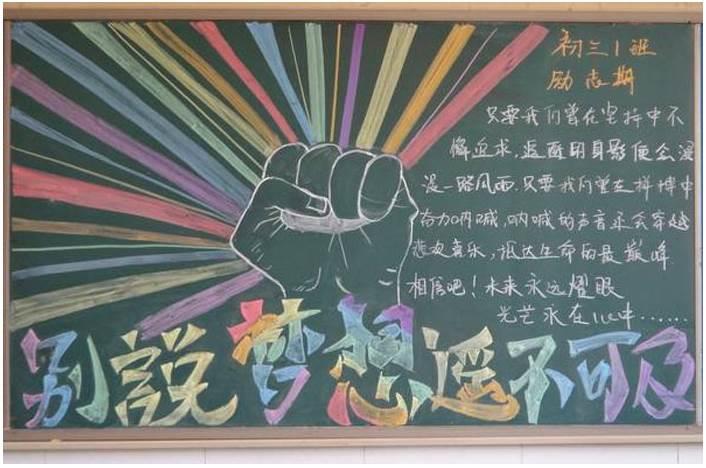 初三1班
励志期
只要我们曾在坚持中不
懈追求,身影便会漫
漫一路风雨,只要我们曾在拼搏中
奋力呐喊,呐喊的声音会穿越
悲欢喜乐,抵达生命的最巅峰
相信吧!未来永远耀眼
光芒永在心中……
别說梦想遥不可及